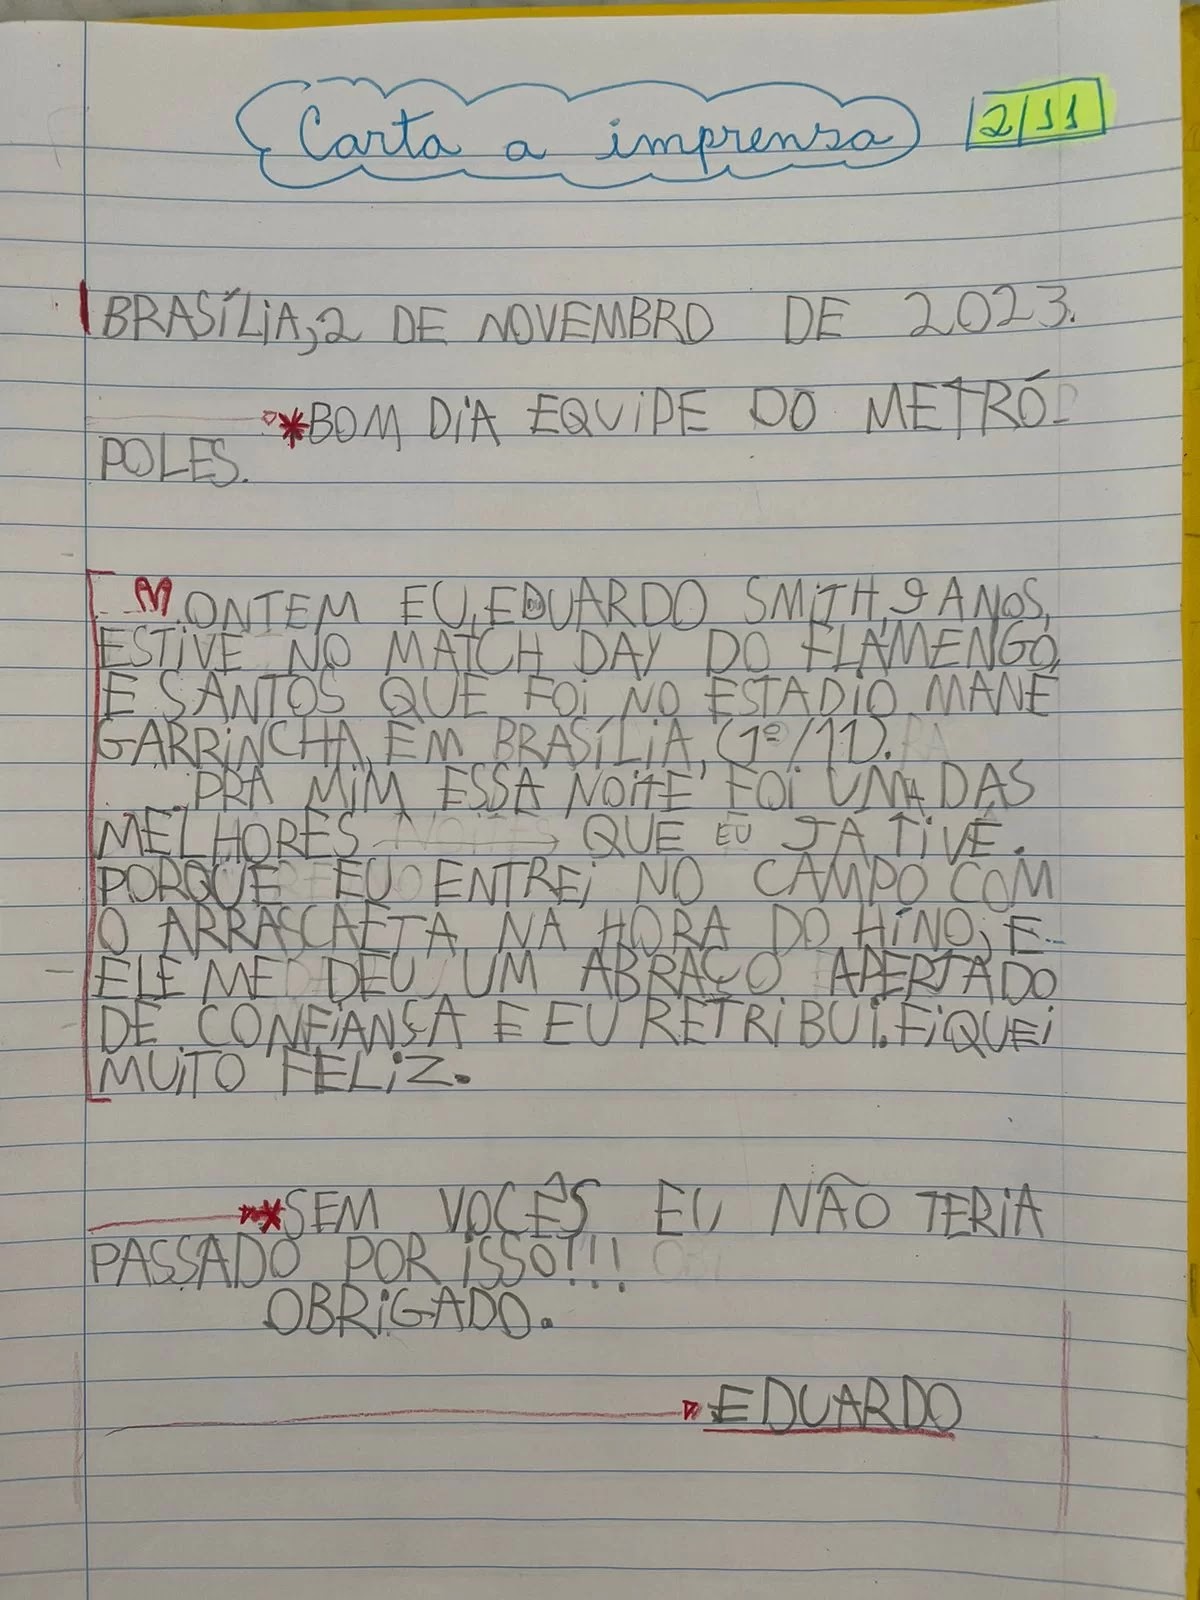 Carta a imprensa 2/11
BRASÍLIA, 2 DE NOVEMBRO DE 2023.
*BOM DIA EQUIPE DO METRÓ-
POLES.
ONTEM EU, EDUARDO SMITH, 9 ANOS,
ESTIVE NO MATCH DAY DO FLAMENGO
E SANTOS QUE FOI NO ESTADIO MANÉ
GARRINCHA, EM BRASÍLIA, (1º/11).
PRA MIM ESSA NOITE FOI UMA DAS
MELHORES QUE EU JÁ TIVE.
PORQUE EU ENTREI NO CAMPO COM
O ARRASCAETA, NA HORA DO HINO, E
ELE ME DEU UM ABRAÇO APERTADO
DE CONFIANSA E EU RETRIBUI. FIQUEI
MUITO FELIZ.
*SEM VOCÊS EU NÃO TERIA
PASSADO POR ISSO!!!
OBRIGADO.
EDUARDO